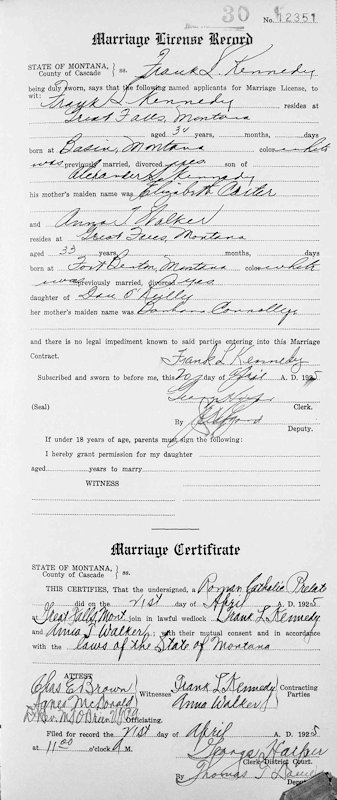 30 No. 12351
Marriage License Record
STATE OF MONTANA, } ss. Frank L. Kennedy
County of Cascade
being duly sworn, says that the following named applicants for Marriage License, to
wit: Frank L Kennedy resides at
Great Falls, Montana
aged 34 years, months, days
born at Basin, Montana color white
was previously married, divorced yes son of
Alexander Kennedy
his mother's maiden name was Elizabeth Carter
and Anna T Walker
resides at Great Falls, Montana
aged 33 years, months, days
born at Fort Benton, Montana color white
was previously married, divorced yes
daughter of Dan O'Reilly
her mother's maiden name was Barbara Connolly
and there is no legal impediment known to said parties entering into this Marriage
Contract.
Frank L Kennedy
Subscribed and sworn to before me, this 20 day of April A. D. 1925
George Harper
(Seal) Clerk.
By
Deputy.
If under 18 years of age, parents must sign the following:
I hereby grant permission for my daughter
aged years to marry
WITNESS
Marriage Certificate
STATE OF MONTANA, } ss.
County of Cascade
THIS CERTIFIES, That the undersigned, a Roman Catholic Prelate
did on the 21st day of April A. D. 1925
at Great Falls, Mont join in lawful wedlock Frank L. Kennedy
and Anna T Walker with their mutual consent and in accordance
with the laws of the State of Montana
ATTEST
Chas E. Brown } Witnesses Frank L Kennedy } Contracting
Agnes McDonald Anna Walker Parties
Rev. M. J. O'Brien Officiating.
Filed for record the 21st day of April 1925
at 11:00 o'clock A M. George Harper
Clerk District Court.
By Thomas
Deputy.